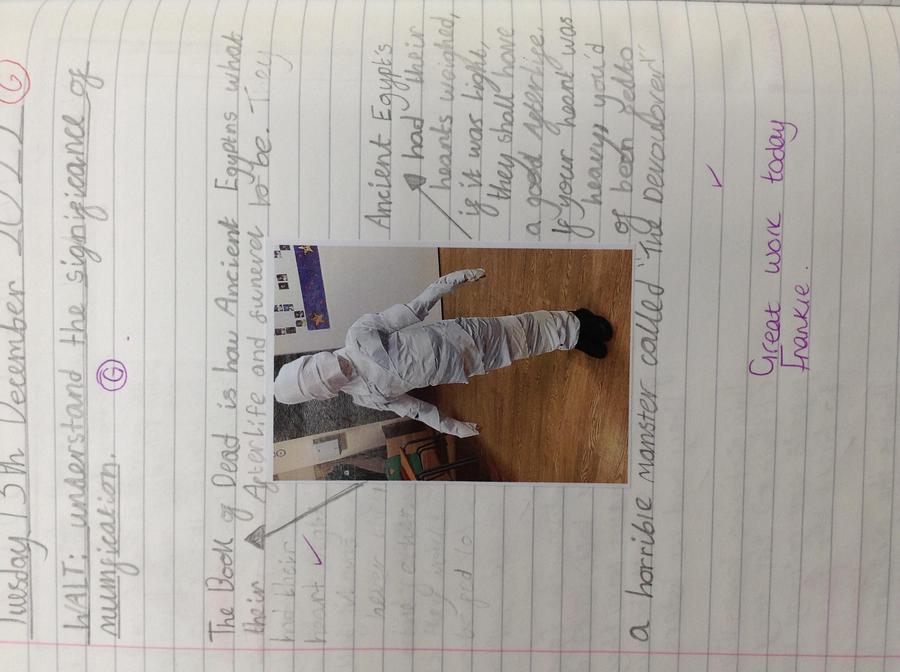 Tuesday 13th December 2022 G
WALT: understand the significance of
mumification. G
The Book of Dead is how Ancient Egyptns what
their Afterlife and owneral to be. They
had their
heart
Ancient Egypt's
had their
hearts weighed,
if it was light,
they shall have
a good afterlife.
If your heart was
heavy, you'd
of been
a horrible monster called "The Devourer!"
Great work today
Frankie.